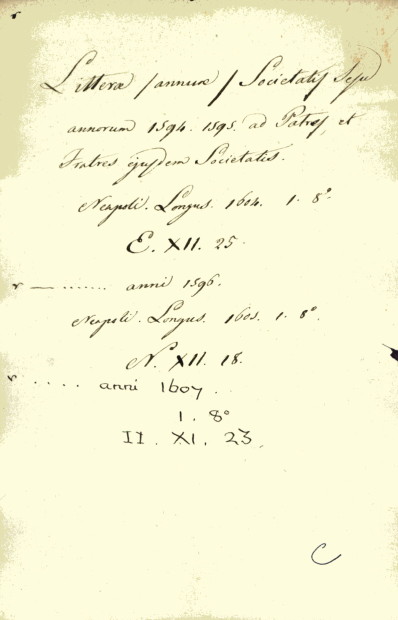 Litterae /annuae/ Societatis Jesu
annorum 1594. 1595. ad Patres, et
Fratres ejusdem Societatis.
Neapoli. Longus. 1604. 1. 8°.
E. XII. 25.
r — ....... anni 1596.
Neapoli. Longus. 1605. 1. 8°.
N. XII. 18.
r ..... anni 1607.
1. 8°
II. XI. 23.
C